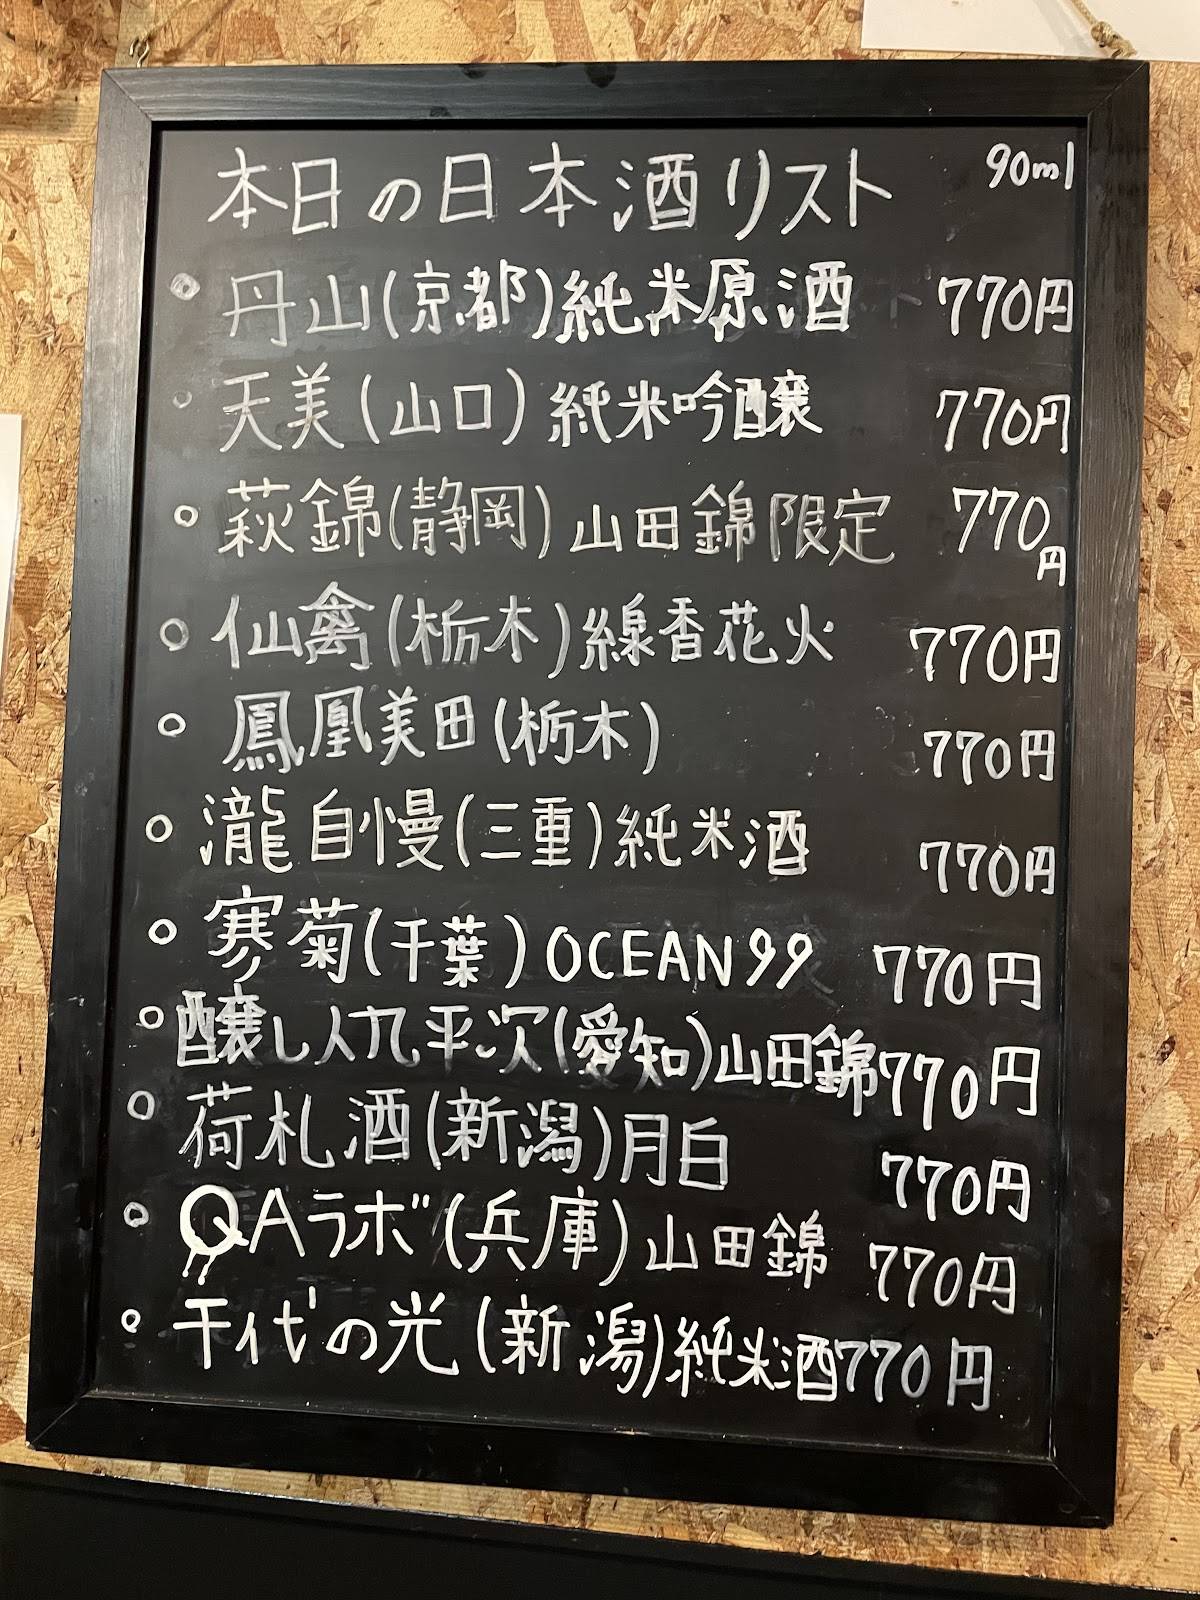 本日の日本酒リスト 90ml
丹山(京都)純米原酒 770円
天美(山口)純米吟醸 770円
萩錦(静岡)山田錦限定 770円
仙禽(栃木)線香花火 770円
鳳凰美田(栃木) 770円
瀧自慢(三重)純米酒 770円
寒菊(千葉)OCEAN99 770円
醸し人九平次(愛知)山田錦 770円
荷札酒(新潟)月白 770円
QAラボ(兵庫)山田錦 770円
千代の光(新潟)純米酒 770円